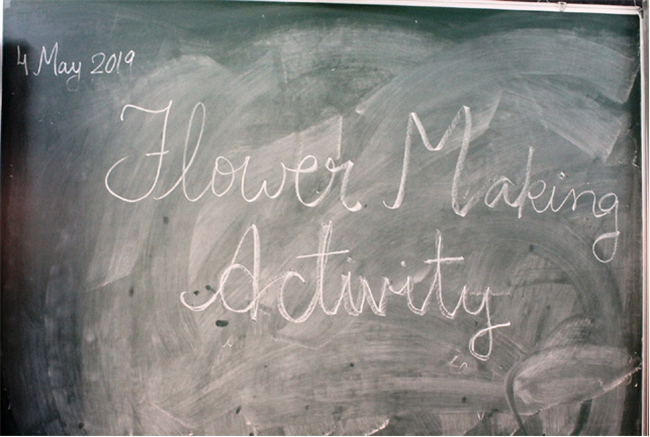 4 May 2019
Flower Making
Activity